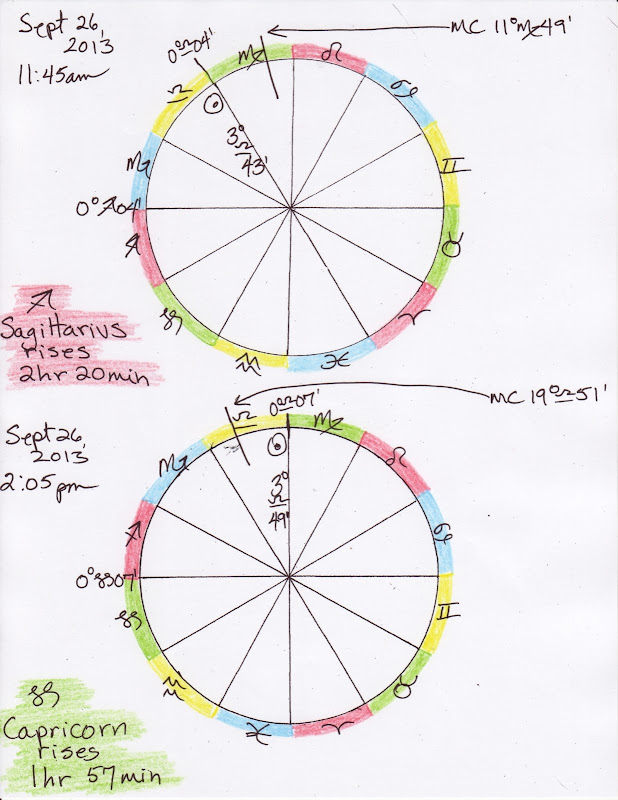 Sept 26,
2013
11:45am
MC 11°♍49'
0°♎04'
♍
♌
♋
♊
♉
♈
♓
♒
♑
♐
♏
♎
☉
3°
♎
43'
0°♐04'
♐
Sagittarius
rises
2hr 20min
Sept 26,
2013
2:05pm
MC 19°♎51'
0°♎07'
♎
♍
♌
♋
♊
♉
♈
♓
♒
♑
♐
♏
☉
3°
♎
49'
0°♑07'
♑
Capricorn
rises
1hr 57min